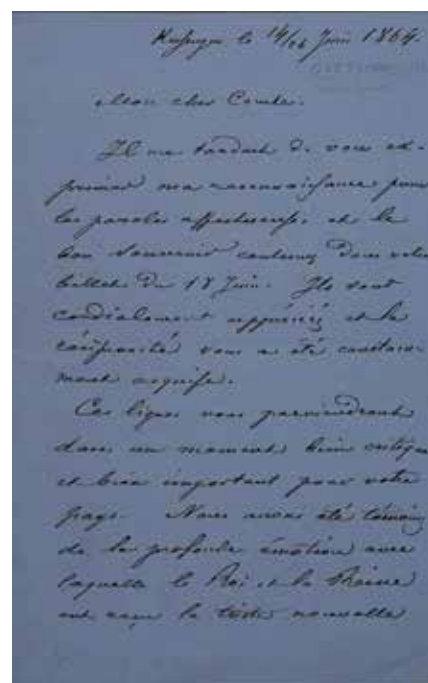 Kissingen le 14/26 Juin 1864.
Mon cher Comte.
Il me tardait de vous ex-
primer ma reconnaissance pour
les paroles affectueuses et le
bon souvenir contenus dans votre
billet du 18 Juin. Ils sont
cordialement appréciés et la
réciprocité vous a été constam-
ment acquise.
Ces lignes vous parviendront
dans un moment bien critique
et bien important pour votre
pays. Nous avons été témoins
de la profonde émotion avec
laquelle le Roi et la Reine
ont reçu la triste nouvelle